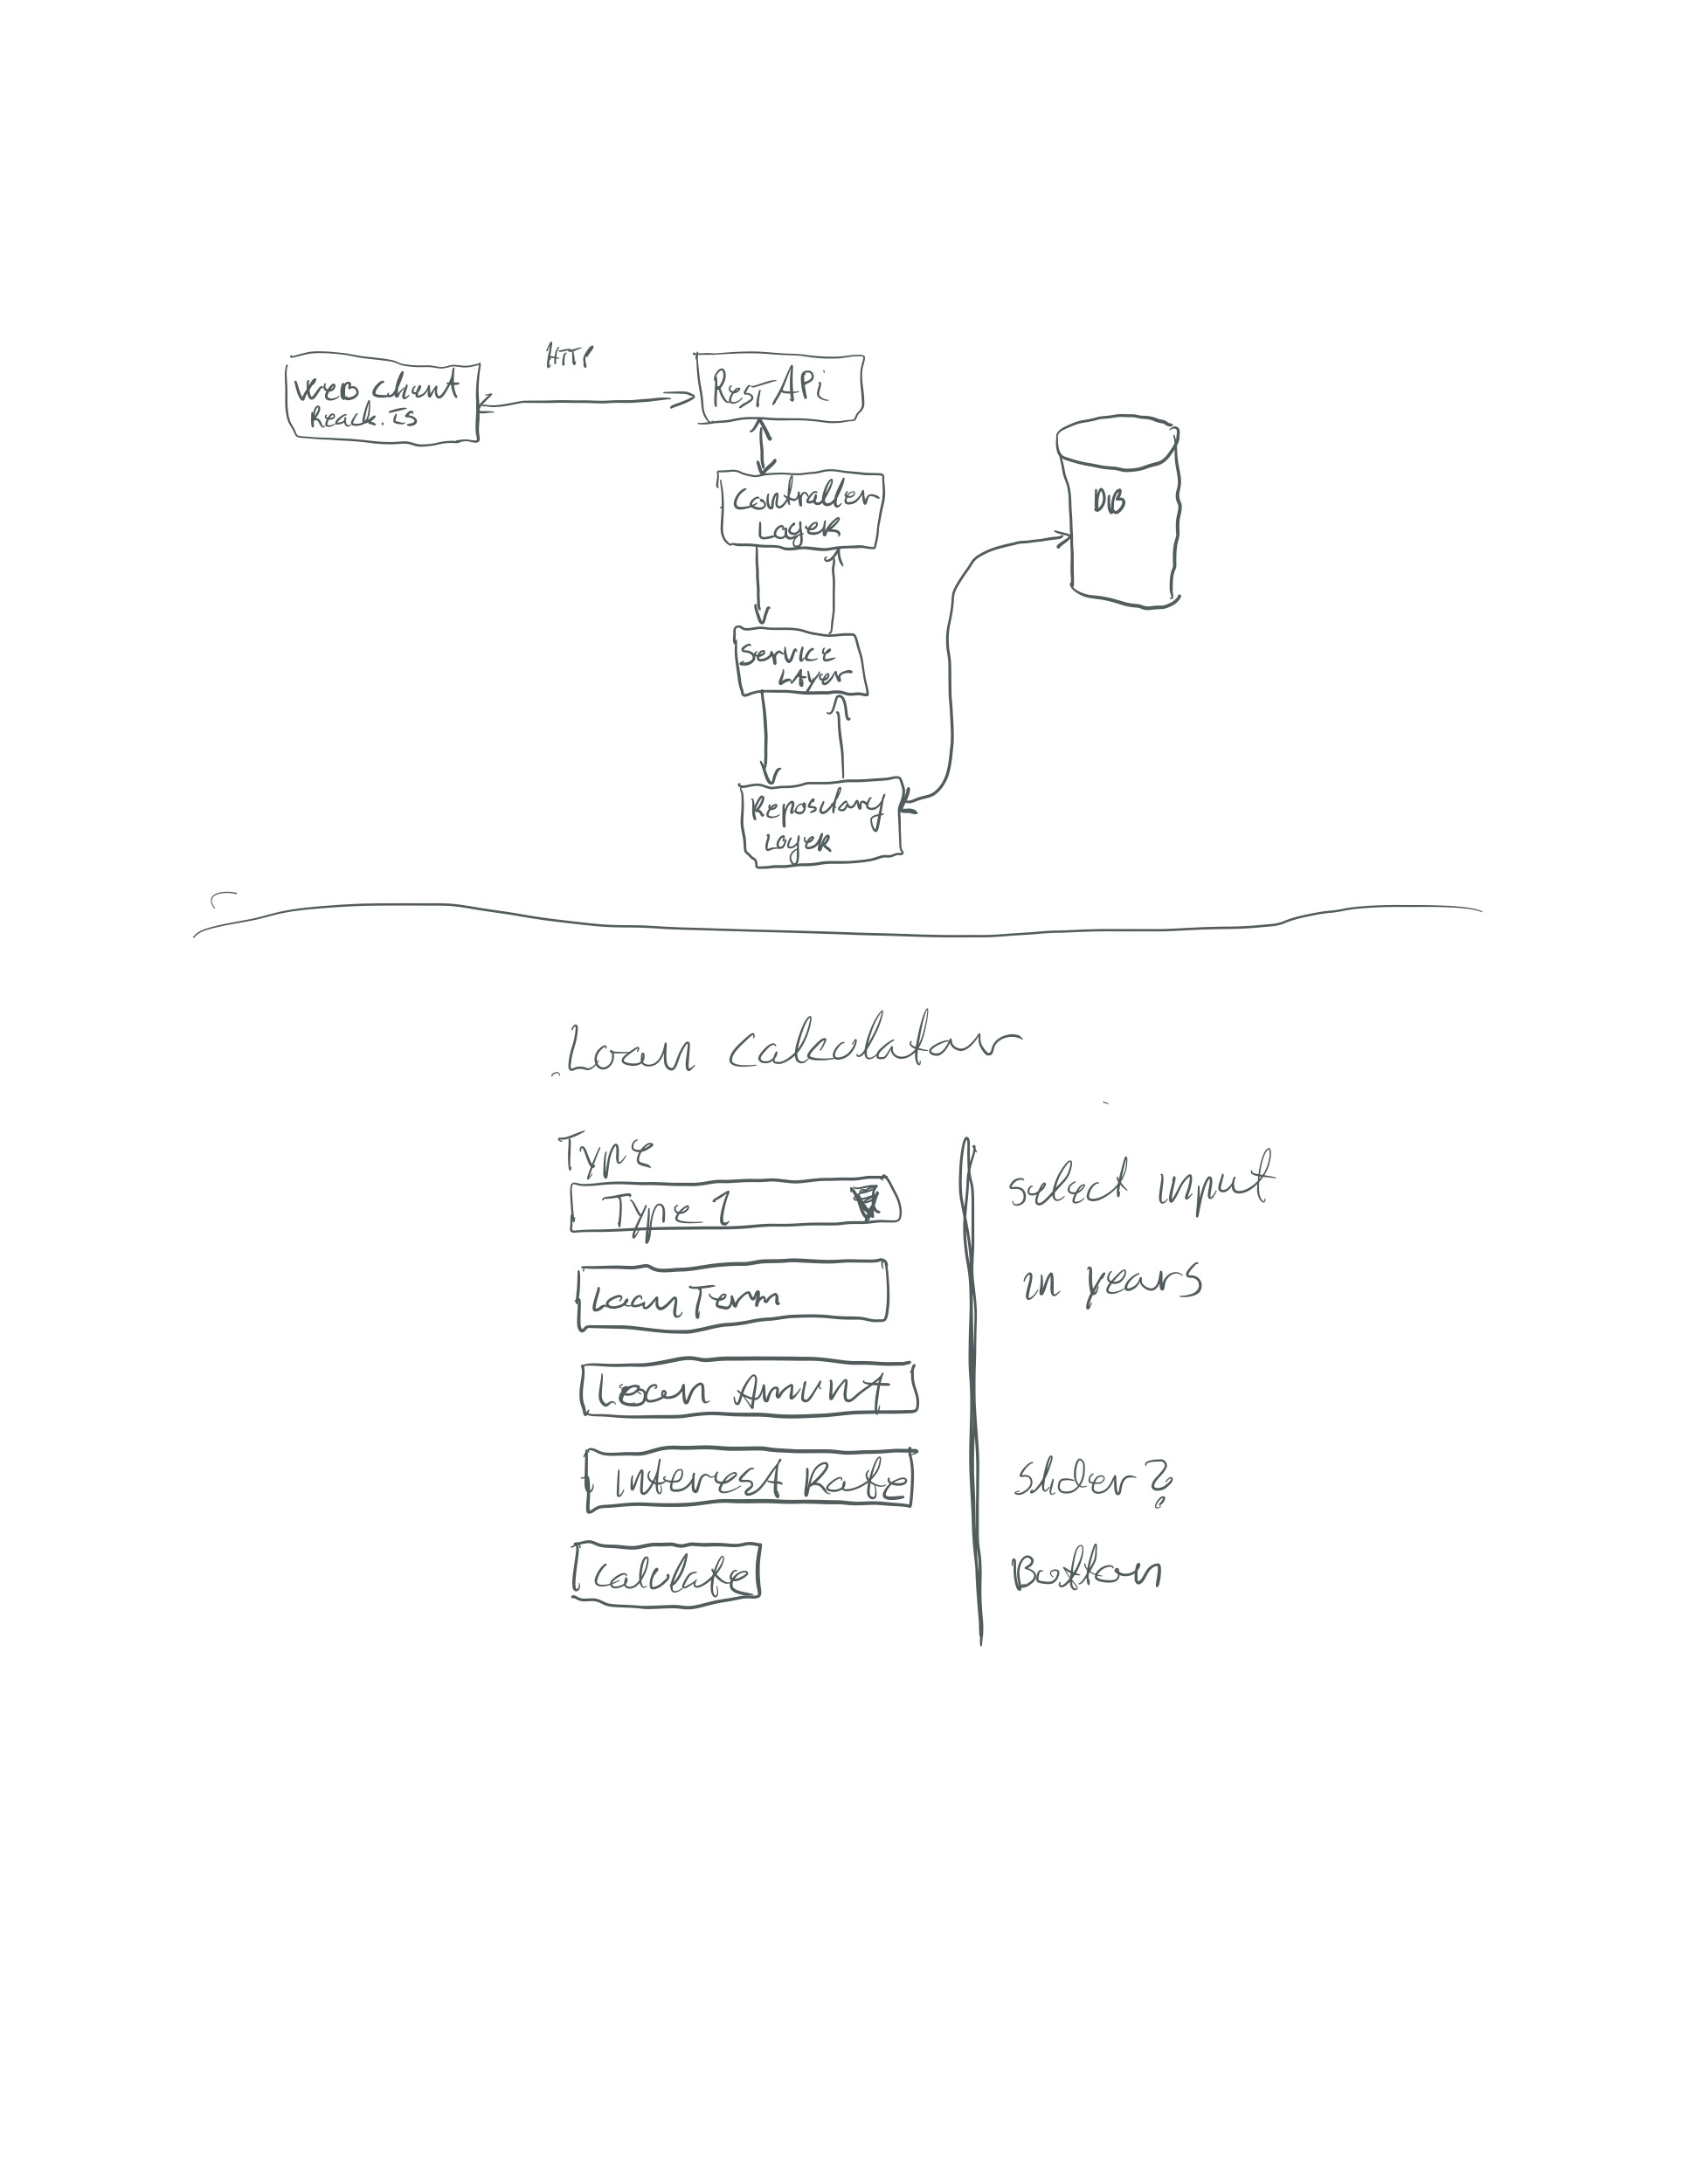 HTTP
Web Client
React.Js
Rest APi
Controller
Layer
DB
Service
Layer
Repository
Layer
Loan Calculator
Type
Type 1
select input
Loan Term
in years
Loan Amunt
Interest Rate
Slider?
Calculate
Button